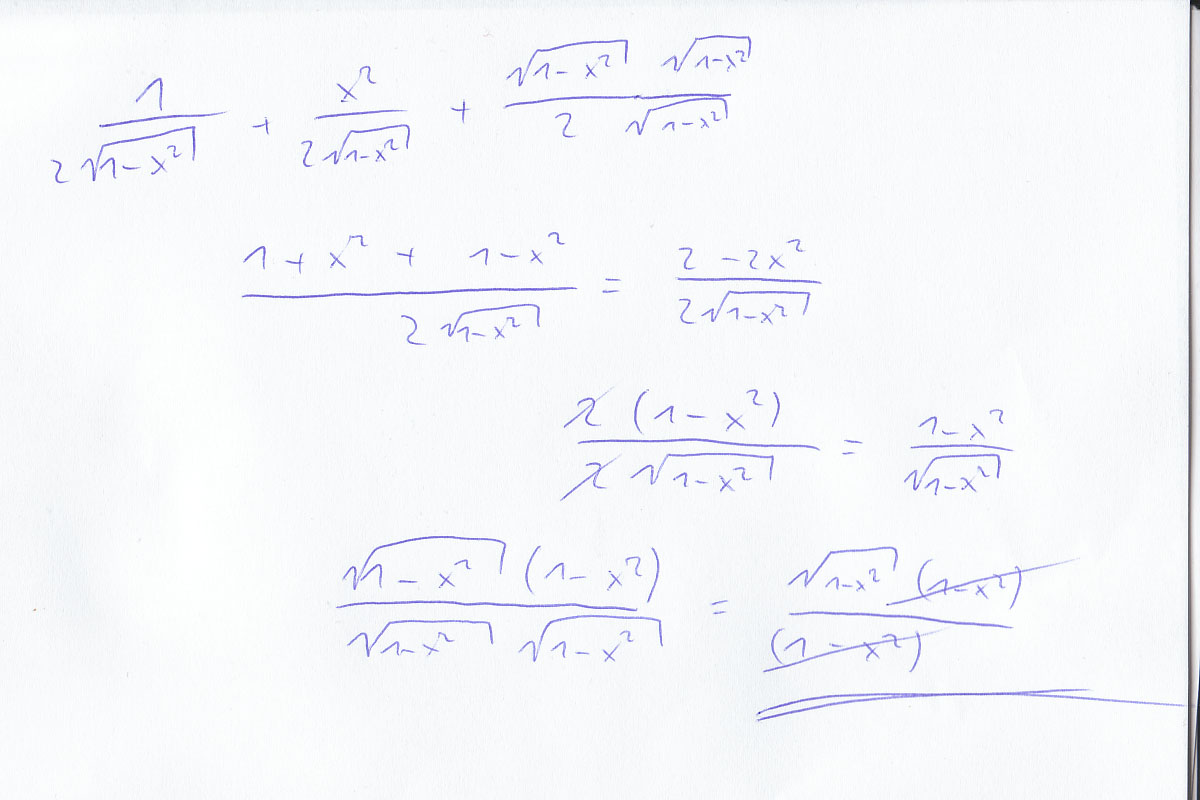 1/(2√(1-x²)) + x²/(2√(1-x²)) + (√(1-x²) √(1-x²))/(2 √(1-x²))
(1 + x² + 1-x²)/(2√(1-x²)) = (2 - 2x²)/(2√(1-x²))
(2 (1-x²))/(2 √(1-x²)) = (1-x²)/√(1-x²)
(√(1-x²) (1-x²))/(√(1-x²) √(1-x²)) = (√(1-x²) (1-x²))/(1-x²)